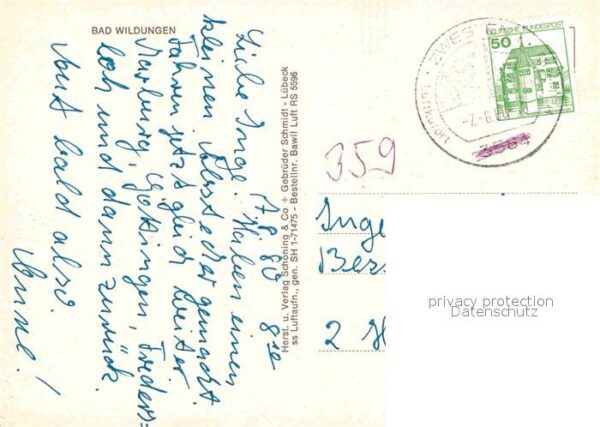 BAD WILDUNGEN
7.8.80 8 00
Liebe Inge! Haben einen
kleinen gemacht.
Fahren jetzt gleich weiter
Marburg, Göttingen, Frieders=
loh und dann zurück.
Somit bald also.
Herst. u. Verlag Schöning & Co + Gebrüder Schmidt - Lübeck
ss Luftaufn., gen. SH 1-71475 - Bestellnr. Bawil Luft RS 5596
DEUTSCHE BUNDESPOST
50
ZWESTEN
359
Inge
Bes
2 H
privacy protection
Datenschutz